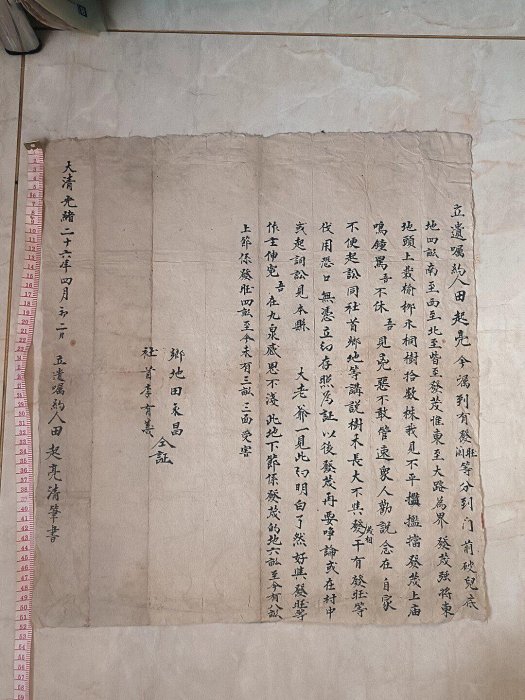 立遺嘱約人田起亮今為到有發旺等分到門前坡兒底
地四畝南至西至北至皆至發茂惟東至大路為界發茂強將東
地頭上栽榆柳木桐樹拾數株我見不平攔擋發茂上庙
鳴鐘罵吾不休吾見兇惡不敢管速衆人勸說念在自家
不便起訟同社首鄉地等講說樹木長大不與發茂相干有發旺等
伐用恐口無憑立約存照為証以後發茂再要争論或在村中
或起詞訟見本縣大老爺一見此約明白了然好與發旺等
作主伸冤吾在九泉感恩不淺此地下節係發茂的地六畝至今有八畝
上節係發旺四畝至今未有三畝三面受害
鄉地田永昌
社首李有義
仝証
大清光緒二十六年四月初二日立遺嘱約人田起亮清筆書